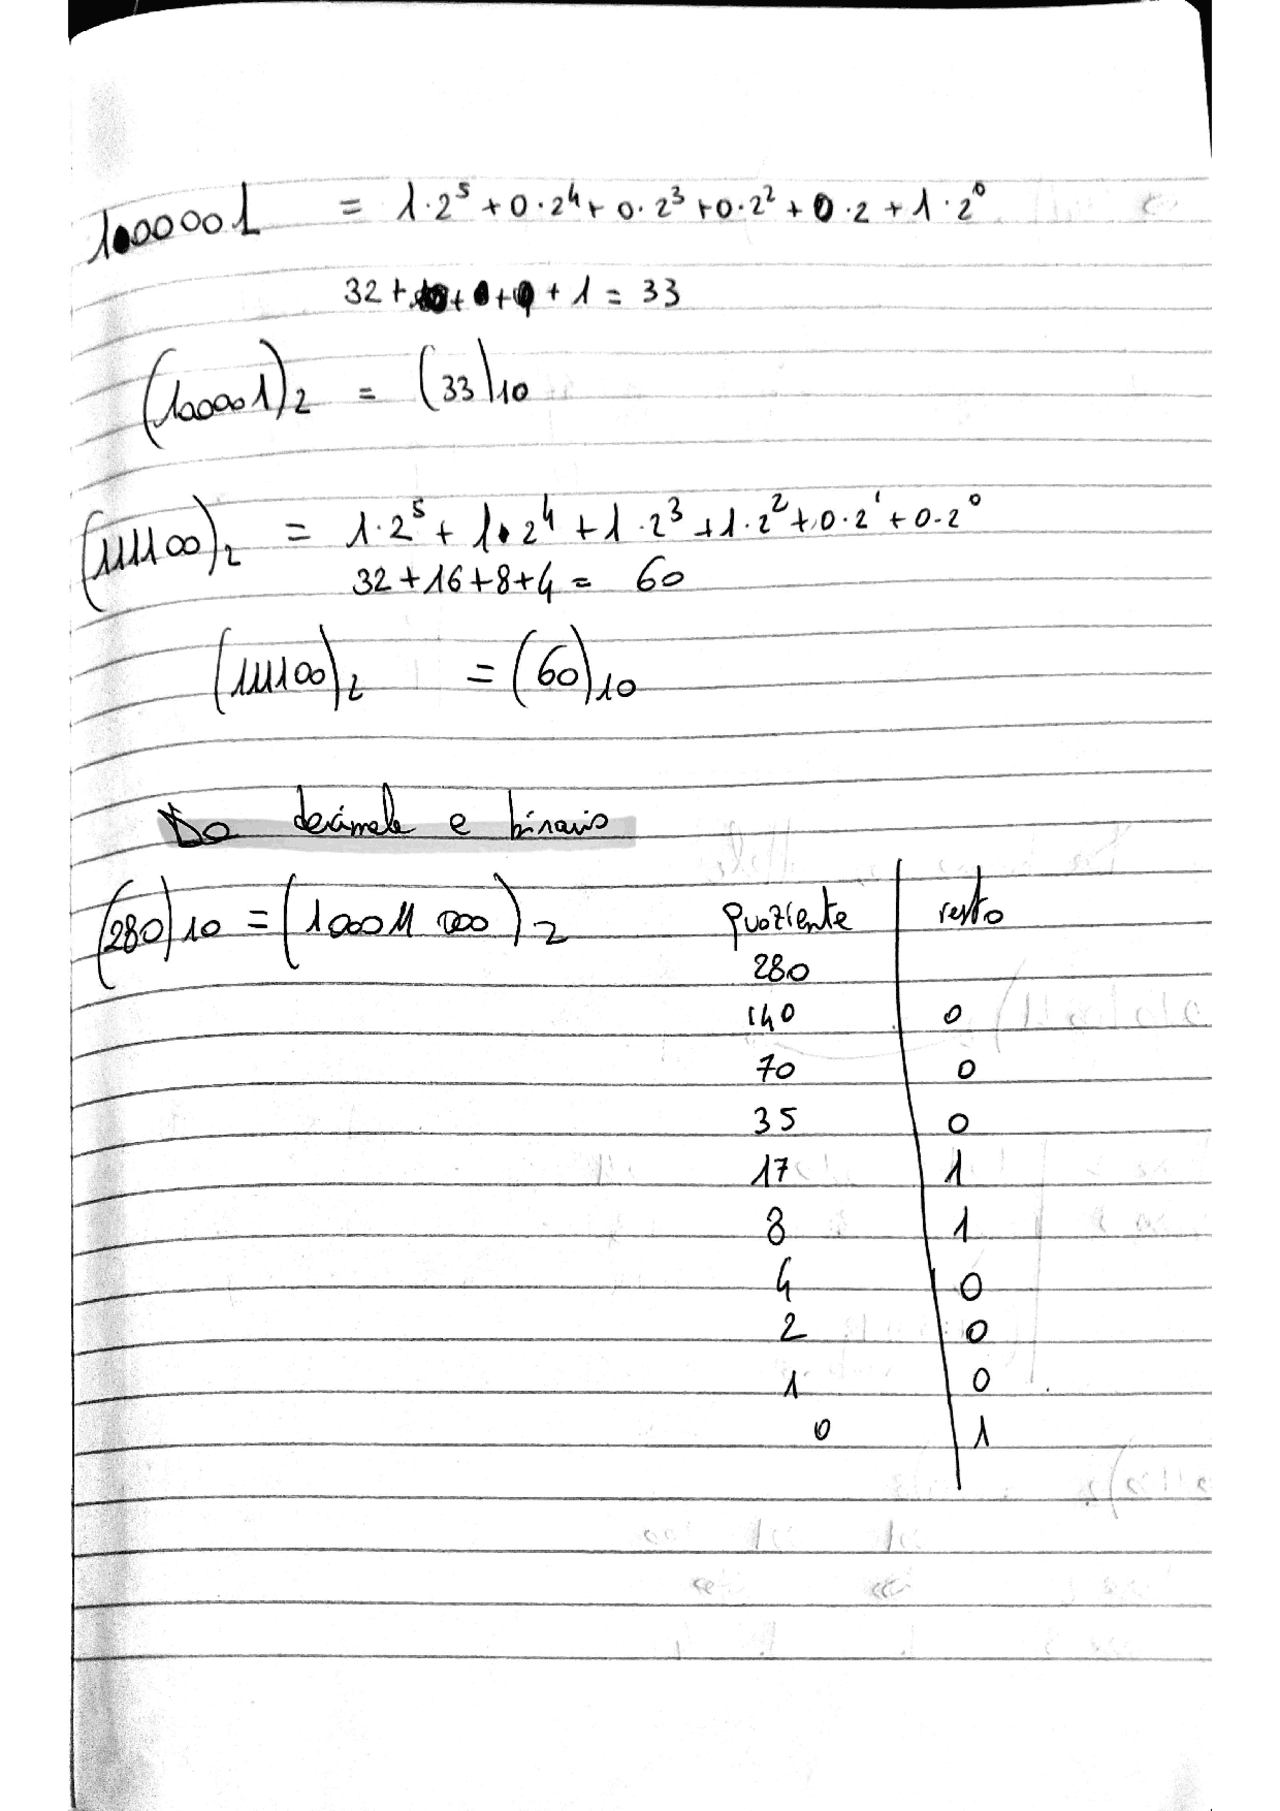 100001 = 1·2⁵ + 0·2⁴ + 0·2³ + 0·2² + 0·2 + 1·2⁰
32 + + 0 + 0 + 1 = 33
(100001)₂ = (33)₁₀
(111100)₂ = 1·2⁵ + 1·2⁴ + 1·2³ + 1·2² + 0·2¹ + 0·2⁰
32 + 16 + 8 + 4 = 60
(111100)₂ = (60)₁₀
Da decimale a binario
(280)₁₀ = (100011000)₂
quoziente resto
280
140 0
70 0
35 0
17 1
8 1
4 0
2 0
1 0
0 1